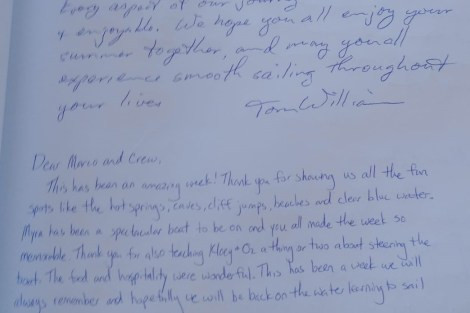 Every aspect of our journey
& enjoyable. We hope you all enjoy your
summer together, and may you all
experience smooth sailing throughout
your lives
Tom Willia
Dear Marco and Crew,
This has been an amazing week! Thank you for showing us all the fun
spots like the hot springs, caves, cliff jumps, beaches and clear blue water.
Myra has been a spectacular boat to be on and you all made the week so
memorable. Thank you for also teaching Kloey + Oz a thing or two about steering the
boat. The food and hospitality were wonderful. This has been a week we will
always remember and hopefully we will be back on the water learning to sail